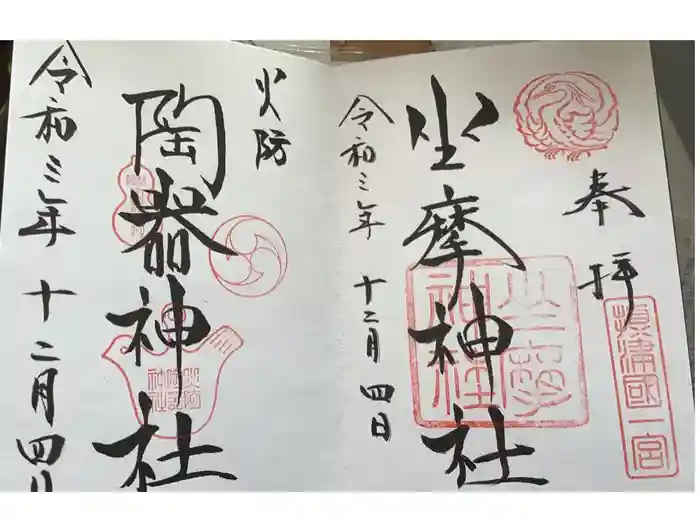 奉拝
摂津國一宮
坐摩神社
坐摩神社
令和三年十二月四日
火防
陶器神社
火防陶器神社
令和三年十二月四日